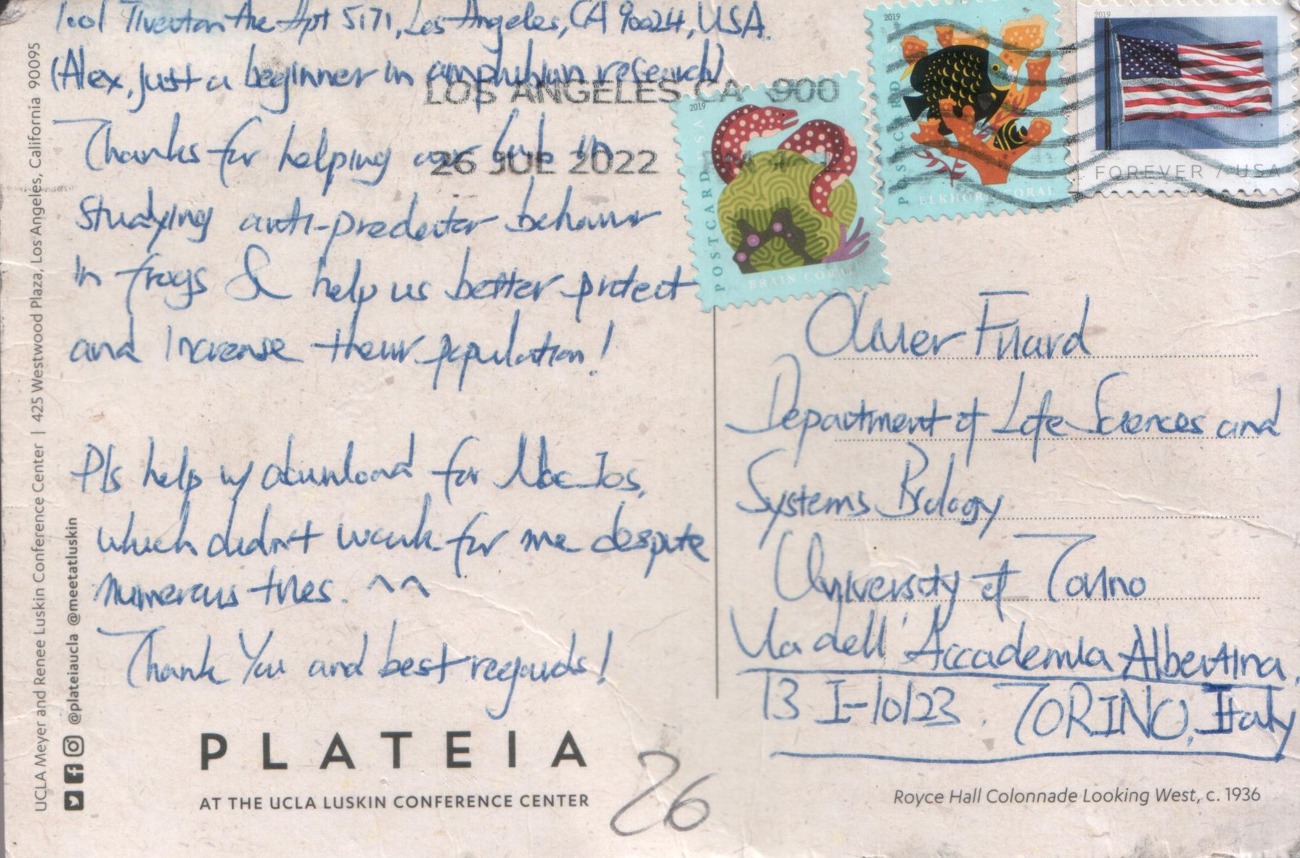 1001 Tiverton Ave Apt 5171, Los Angeles, CA 90024, USA.
(Alex, just a beginner in amphibian research)
Thanks for helping our lab in
studying anti-predator behavior
in frogs & help us better protect
and increase their population!
Pls help w/ download for Mac Ios,
which didn't work for me despite
numerous tries. ^^
Thank You and best regards!
PLATEIA
AT THE UCLA LUSKIN CONFERENCE CENTER
UCLA Meyer and Renee Luskin Conference Center | 425 Westwood Plaza, Los Angeles, California 90095
@plateiaucla @meetatluskin
LOS ANGELES CA 900
26 JUL 2022 PM
2019
POSTCARD USA
BRAIN CORAL
2019
POSTCARD
ELKHORN CORAL
2019
FOREVER / USA
Olivier Friard
Department of Life Sciences and
Systems Biology
University of Torino
Via dell'Accademia Albertina,
13 I-10123. TORINO, Italy
26
Royce Hall Colonnade Looking West, c. 1936